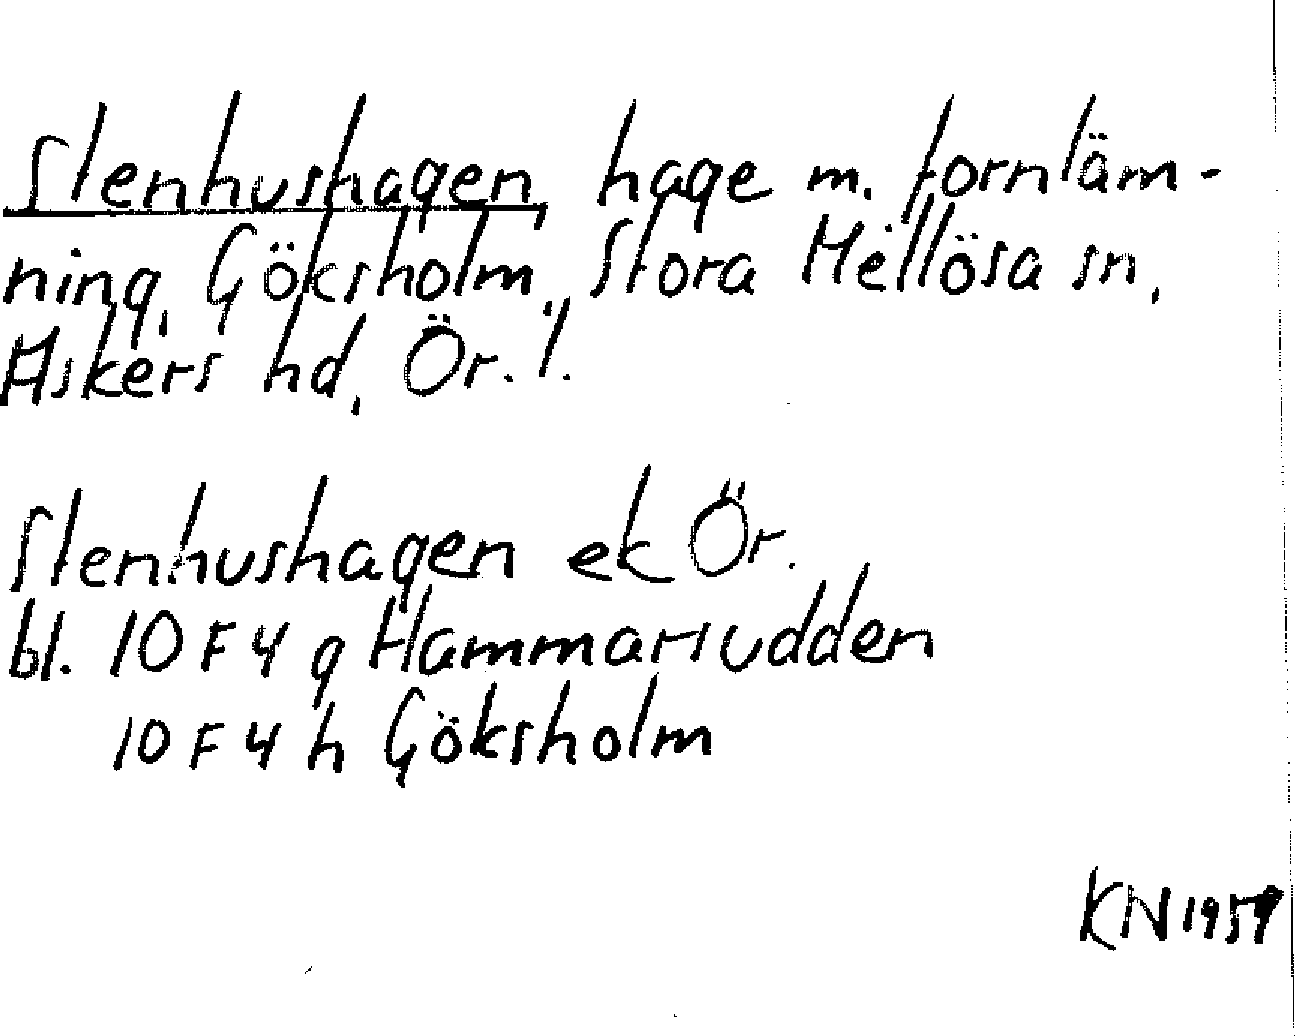 Stenhushagen, hage m. fornläm-
ning, Göksholm, Stora Mellösa sn,
Askers hd, Ör. l.
Stenhushagen ek Ör.
bl. 10 F 4 g Hammarsudden
10 F 4 h Göksholm
KN